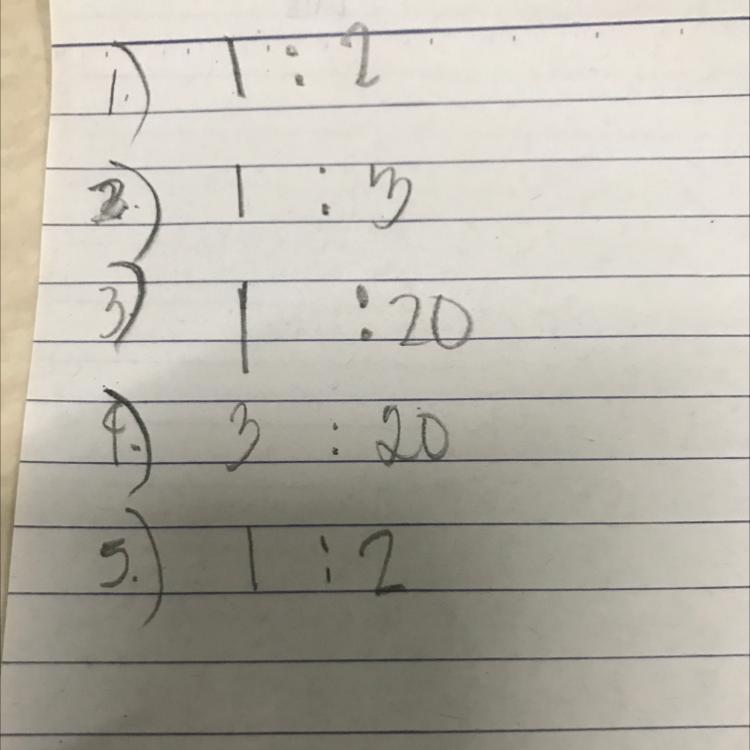 1.) 1 : 2
2.) 1 : 3
3.) 1 : 20
4.) 3 : 20
5.) 1 : 2